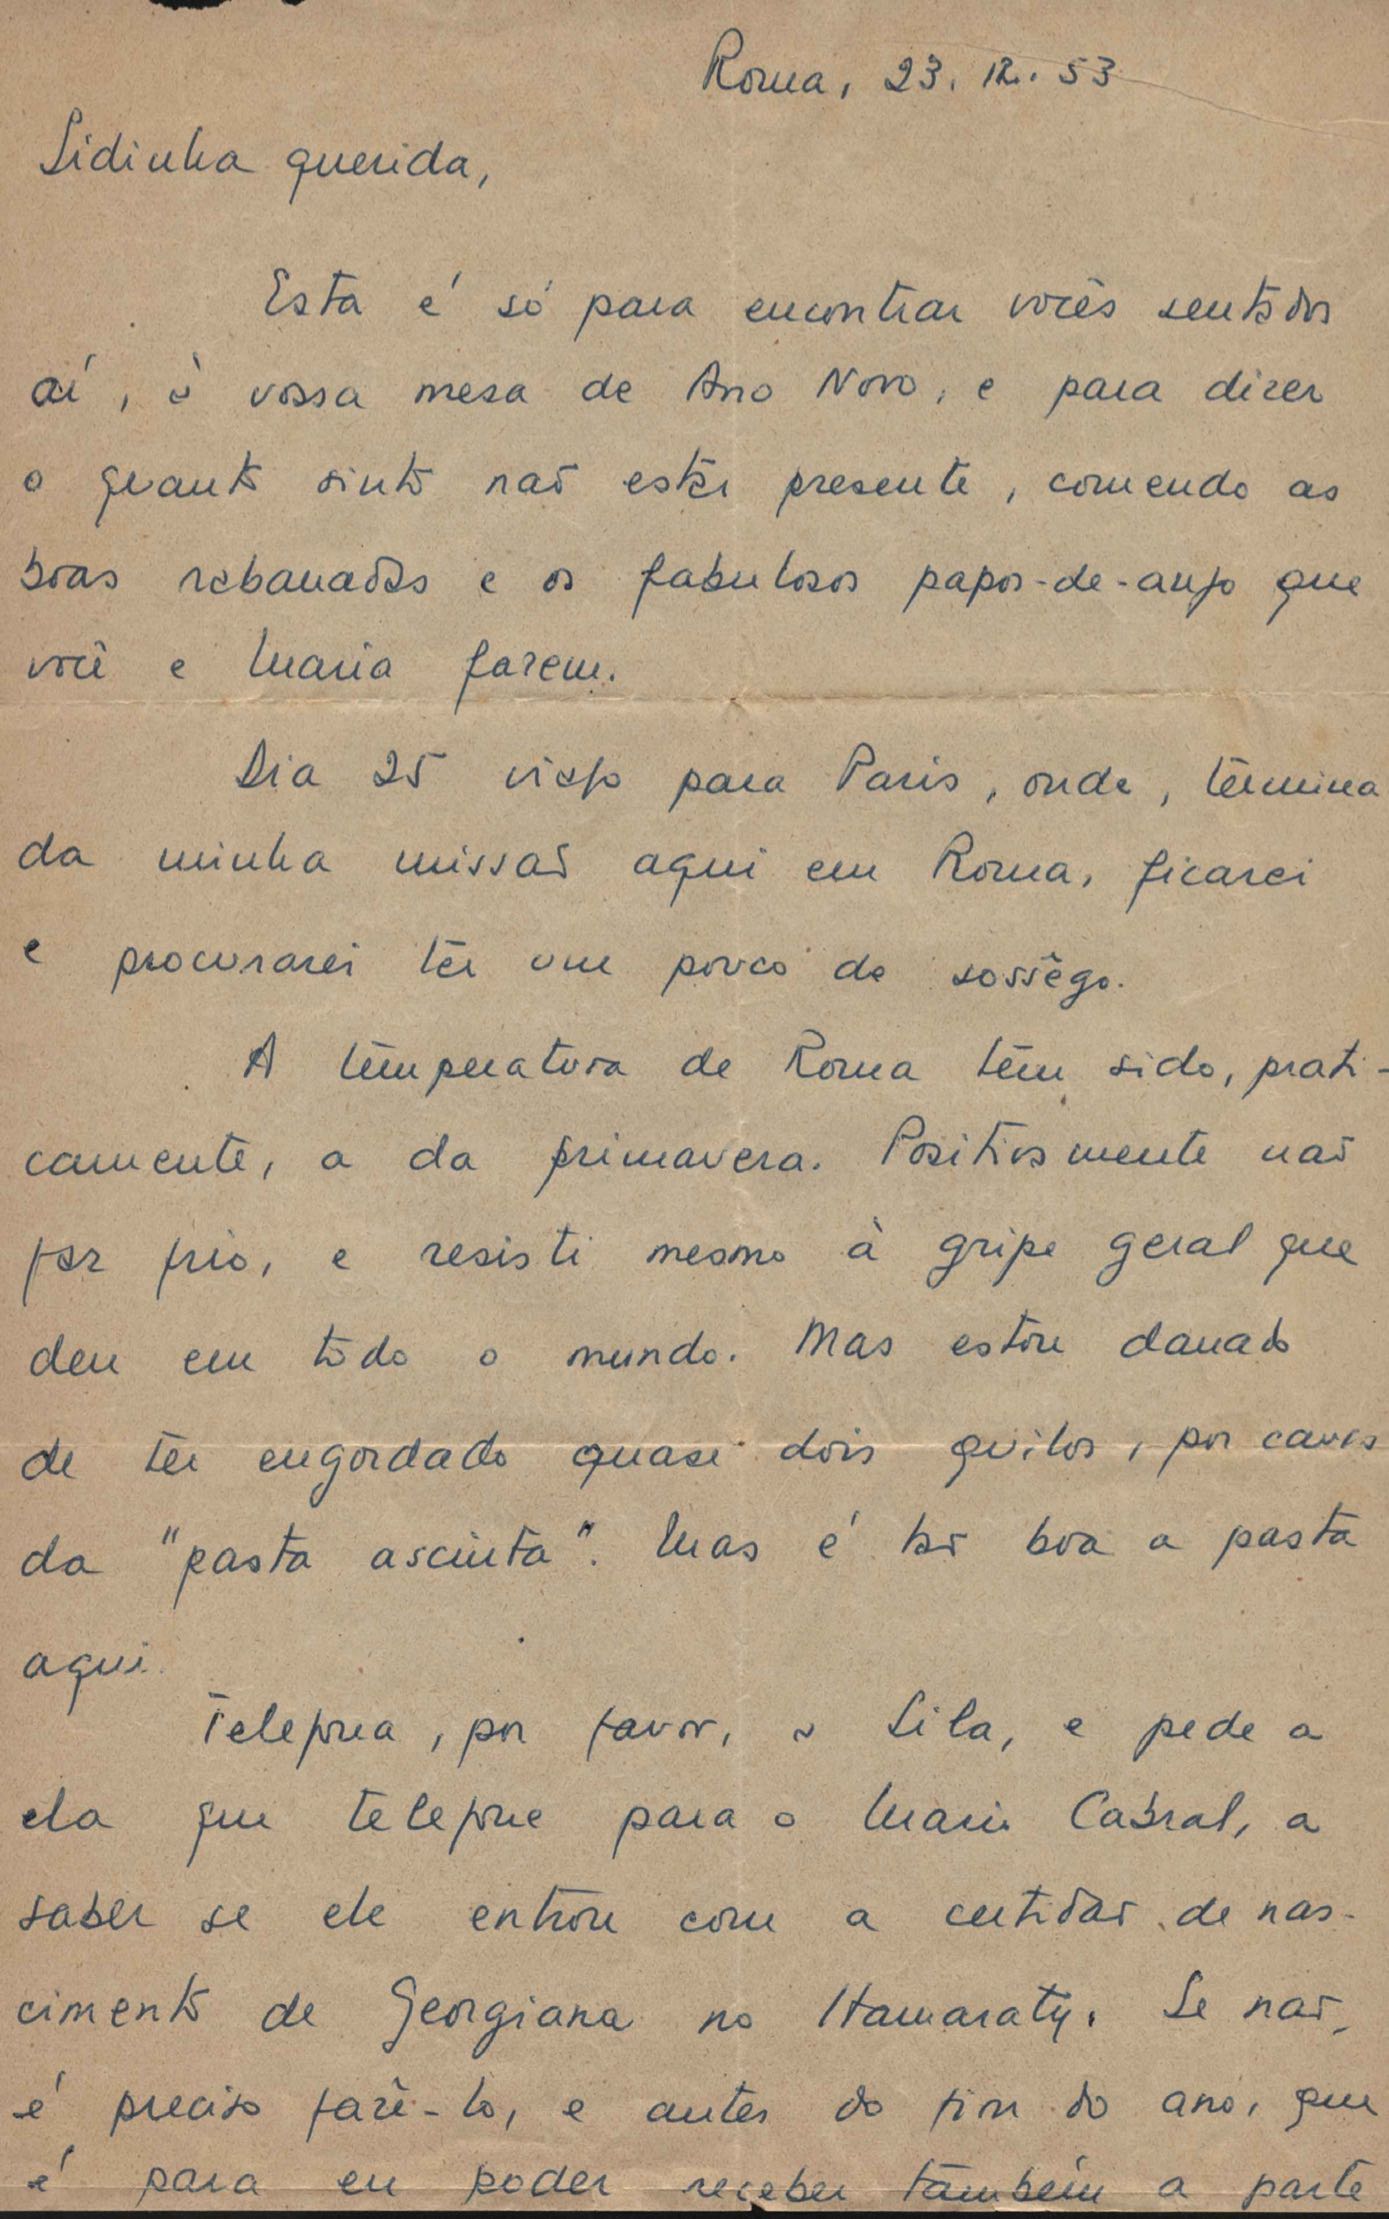 Roma, 23.12.53
Lidinha querida,
Esta é só para encontrar vocês sentados
aí, à vossa mesa de Ano Novo, e para dizer
o quanto sinto não estar presente, comendo as
boas rabanadas e os fabulosos papos-de-anjo que
você e Maria fazem.
Dia 25 viajo para Paris, onde, termina
da minha missão aqui em Roma, ficarei
e procurarei ter um pouco de sossêgo.
A temperatura de Roma tem sido, prati-
camente, a da primavera. Positivamente não
faz frio, e resisti mesmo à gripe geral que
deu em todo o mundo. Mas estou danado
de ter engordado quase dois quilos, por causa
da "pasta asciuta". Mas é tão boa a pasta
aqui.
Telefona, por favor, a Lila, e pede a
ela que telefone para o Mario Cabral, a
saber se ele entrou com a certidão de nas-
cimento de Georgiana no Itamaraty. Se não,
é preciso fazê-lo, e antes do fim do ano, que
é para eu poder receber também a parte